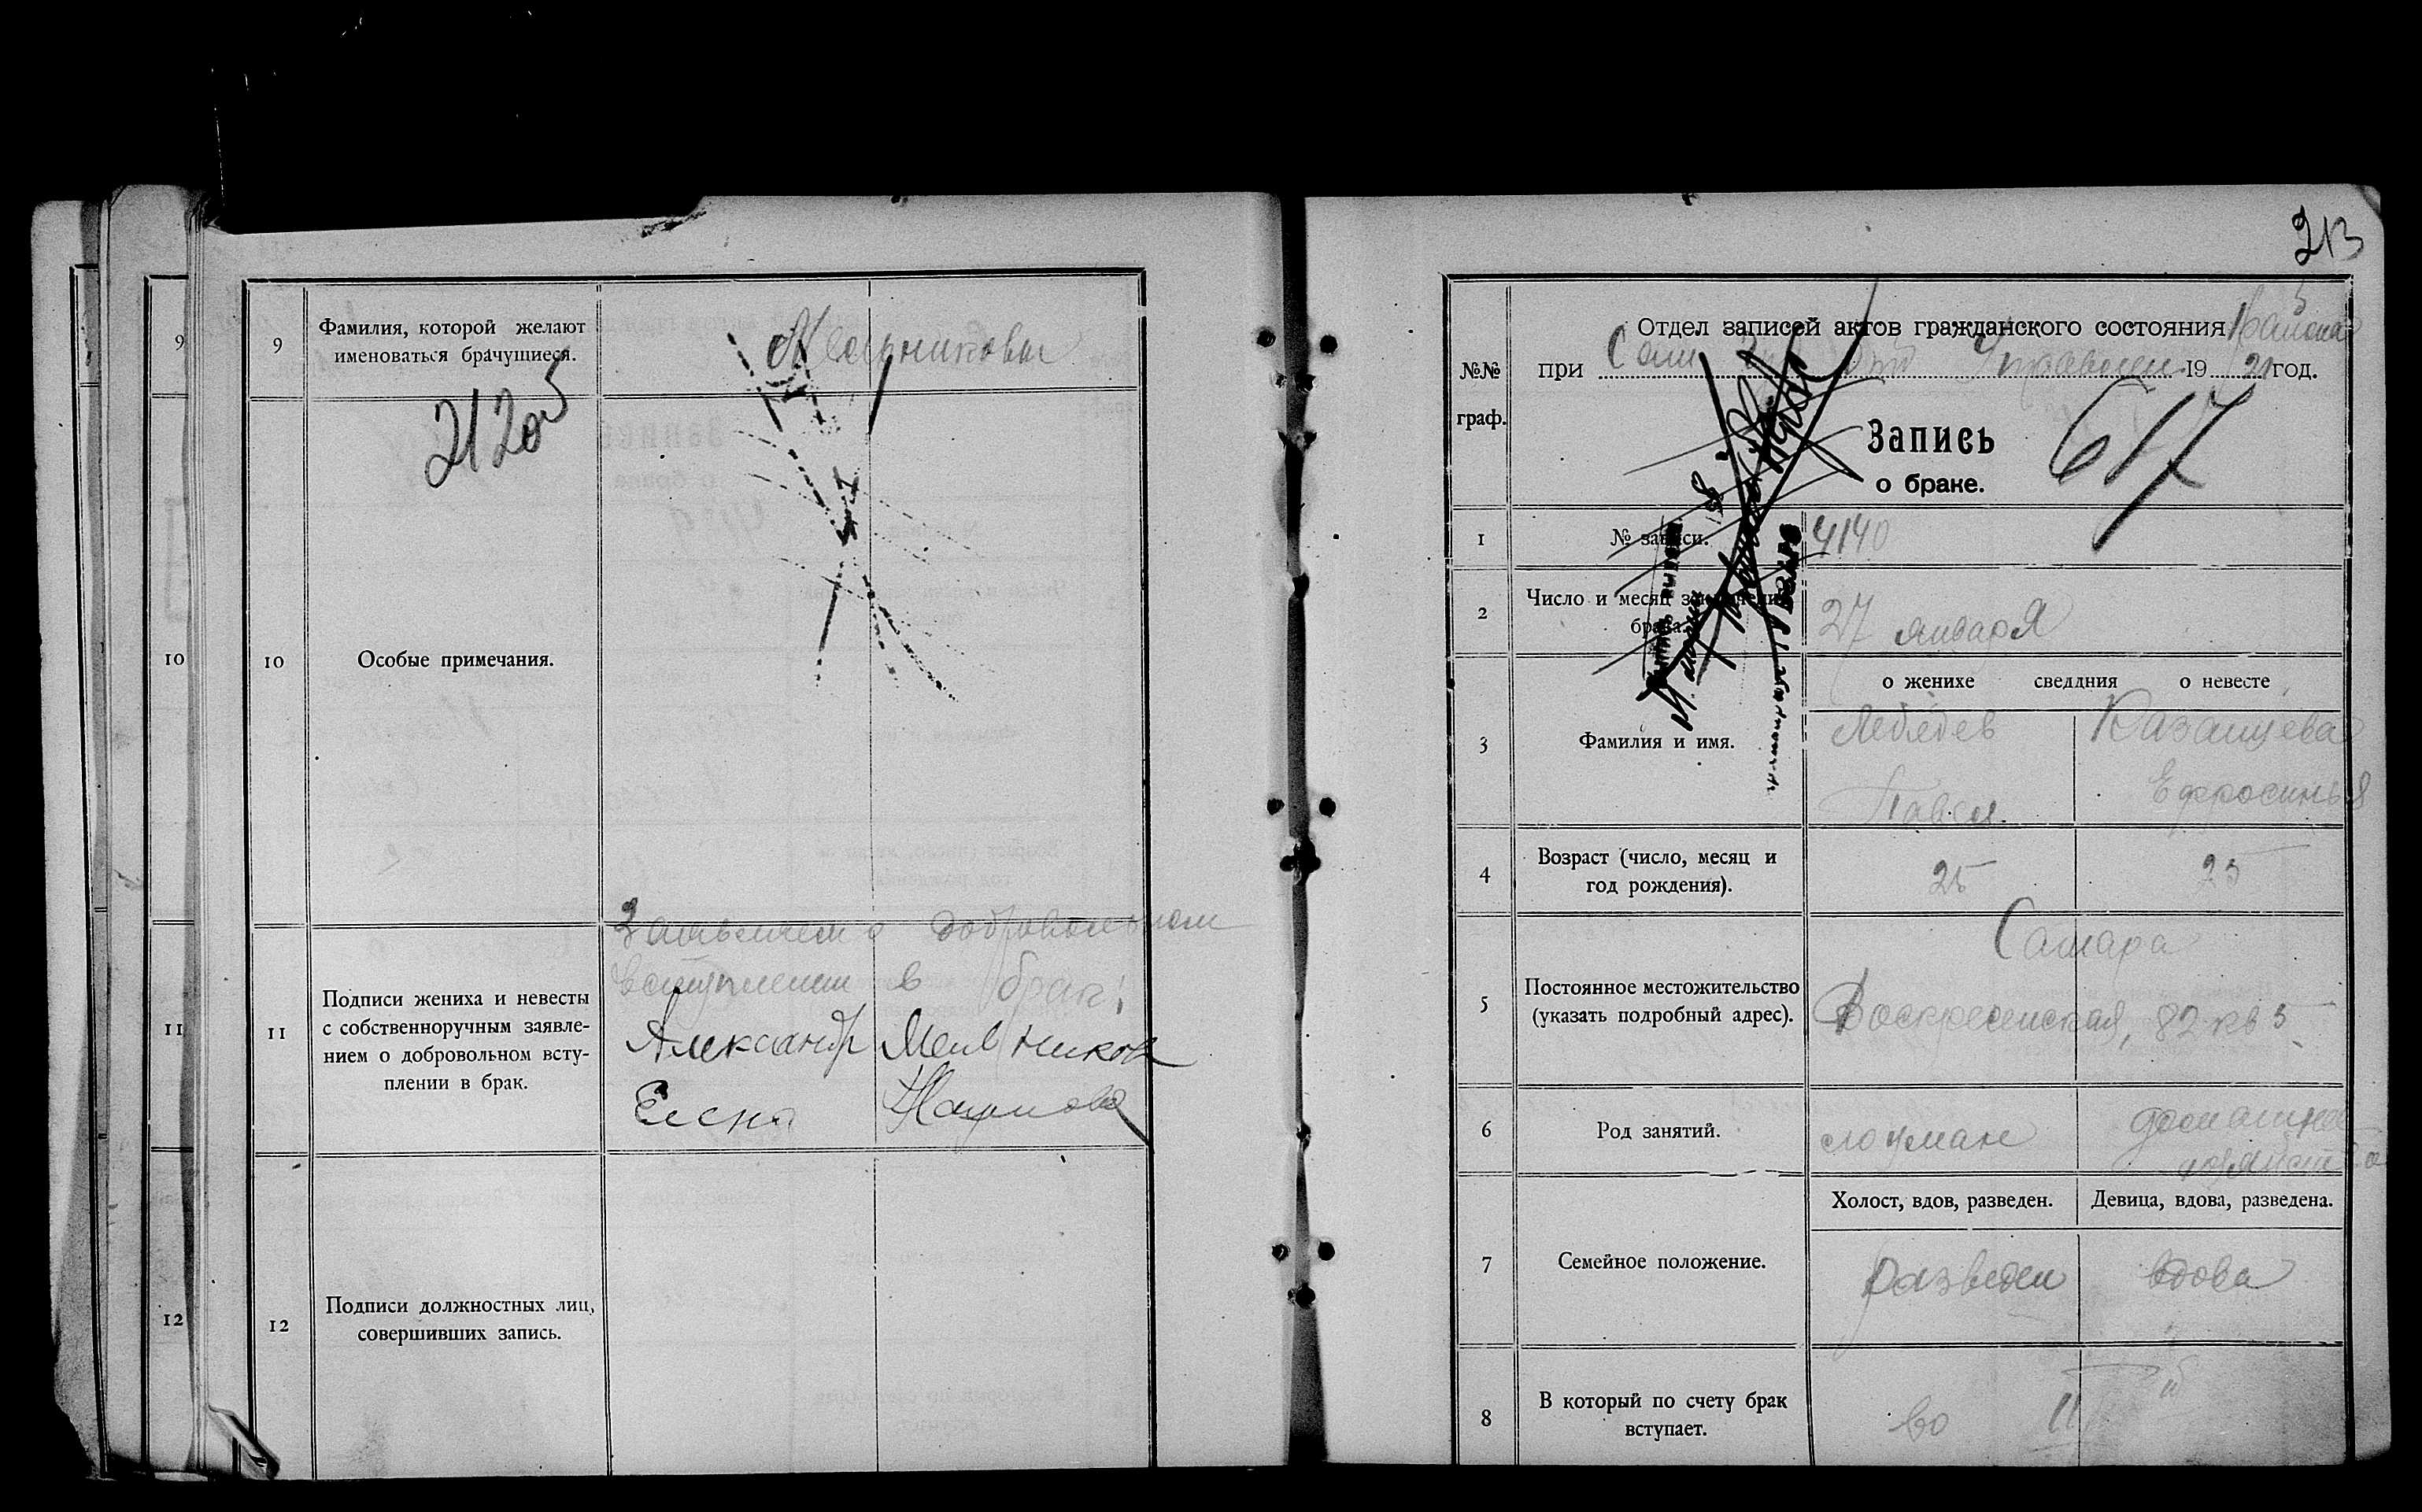 9
10
11
12
9
Фамилия, которой желают
именоваться брачущиеся.
Мельниковы
212об
10
Особые примечания.
11
Подписи жениха и невесты
с собственноручным заявле-
нием о добровольном всту-
плении в брак.
Заявляем о добровольном
вступлении в брак:
Александр Мельников
Елена
12
Подписи должностных лиц,
совершивших запись.
213
№№
граф.
Отдел записей актов гражданского состояния 5 района
при 1921 год.
Запись
о браке.
617
1
№ записи.
4140
2
Число и месяц заключения
брака.
27 января
о женихе сведдния о невесте
3
Фамилия и имя.
Лебедев Казанцева
Павел. Ефросинья
4
Возраст (число, месяц и
год рождения).
25 25
5
Постоянное местожительство
(указать подробный адрес).
Самара
Воскресенская, 82 кв 5
6
Род занятий.
лоцман домашнее
хозяйство
7
Семейное положение.
Холост, вдов, разведен. Девица, вдова, разведена.
разведен вдова
8
В который по счету брак
вступает.
во II й